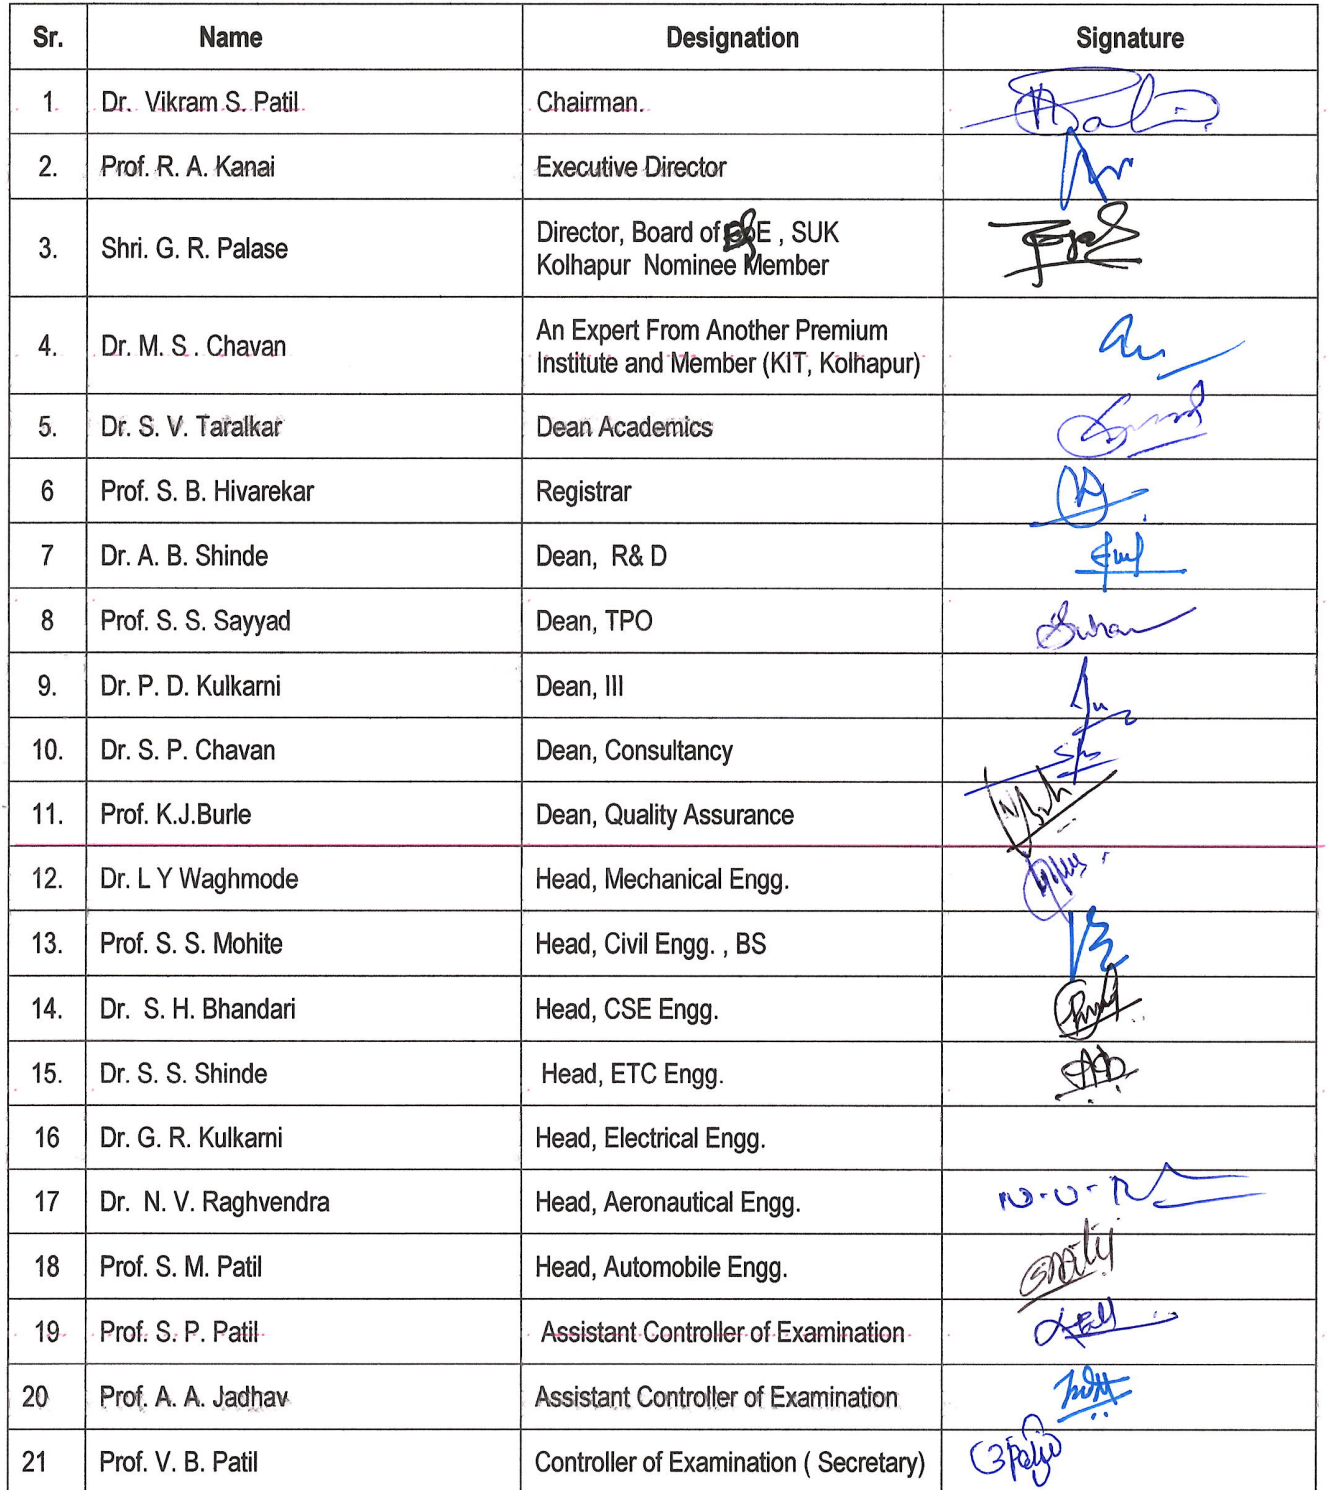 Sr. Name Designation Signature
1. Dr. Vikram S. Patil Chairman.
2. Prof. R. A. Kanai Executive Director
3. Shri. G. R. Palase Director, Board of E , SUK
Kolhapur Nominee Member
4. Dr. M. S . Chavan An Expert From Another Premium
Institute and Member (KIT, Kolhapur)
5. Dr. S. V. Taralkar Dean Academics
6 Prof. S. B. Hivarekar Registrar
7 Dr. A. B. Shinde Dean, R& D
8 Prof. S. S. Sayyad Dean, TPO
9. Dr. P. D. Kulkarni Dean, III
10. Dr. S. P. Chavan Dean, Consultancy
11. Prof. K.J.Burle Dean, Quality Assurance
12. Dr. L Y Waghmode Head, Mechanical Engg.
13. Prof. S. S. Mohite Head, Civil Engg. , BS
14. Dr. S. H. Bhandari Head, CSE Engg.
15. Dr. S. S. Shinde Head, ETC Engg.
16 Dr. G. R. Kulkarni Head, Electrical Engg.
17 Dr. N. V. Raghvendra Head, Aeronautical Engg.
18 Prof. S. M. Patil Head, Automobile Engg.
19 Prof. S. P. Patil Assistant Controller of Examination
20 Prof. A. A. Jadhav Assistant Controller of Examination
21 Prof. V. B. Patil Controller of Examination ( Secretary)